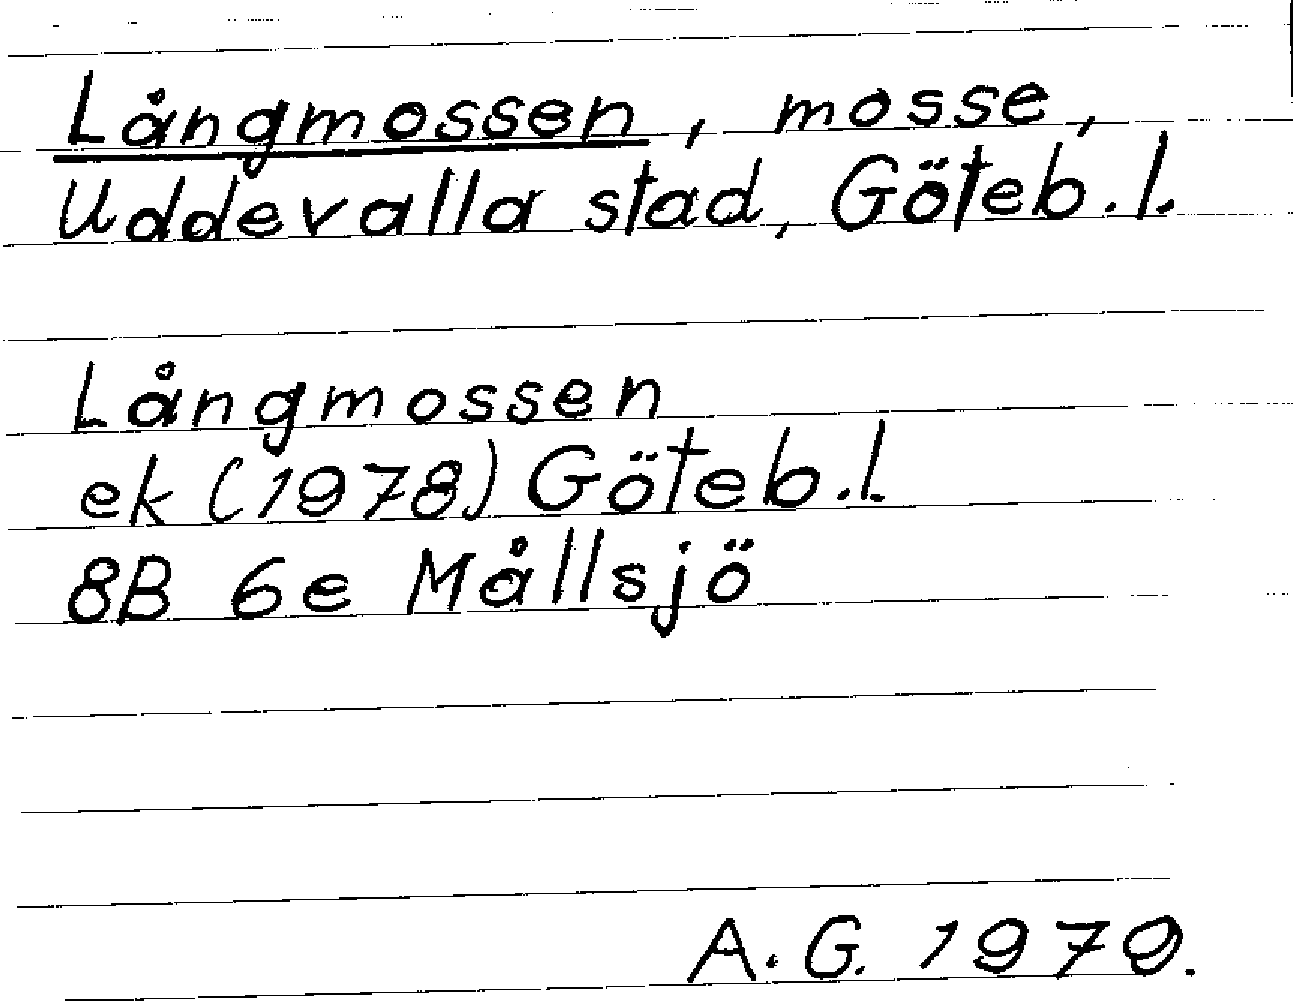 Långmossen, mosse,
Uddevalla stad, Göteb.l.
Långmossen
ek (1978) Göteb.l.
8B 6e Mållsjö
A.G. 1979.